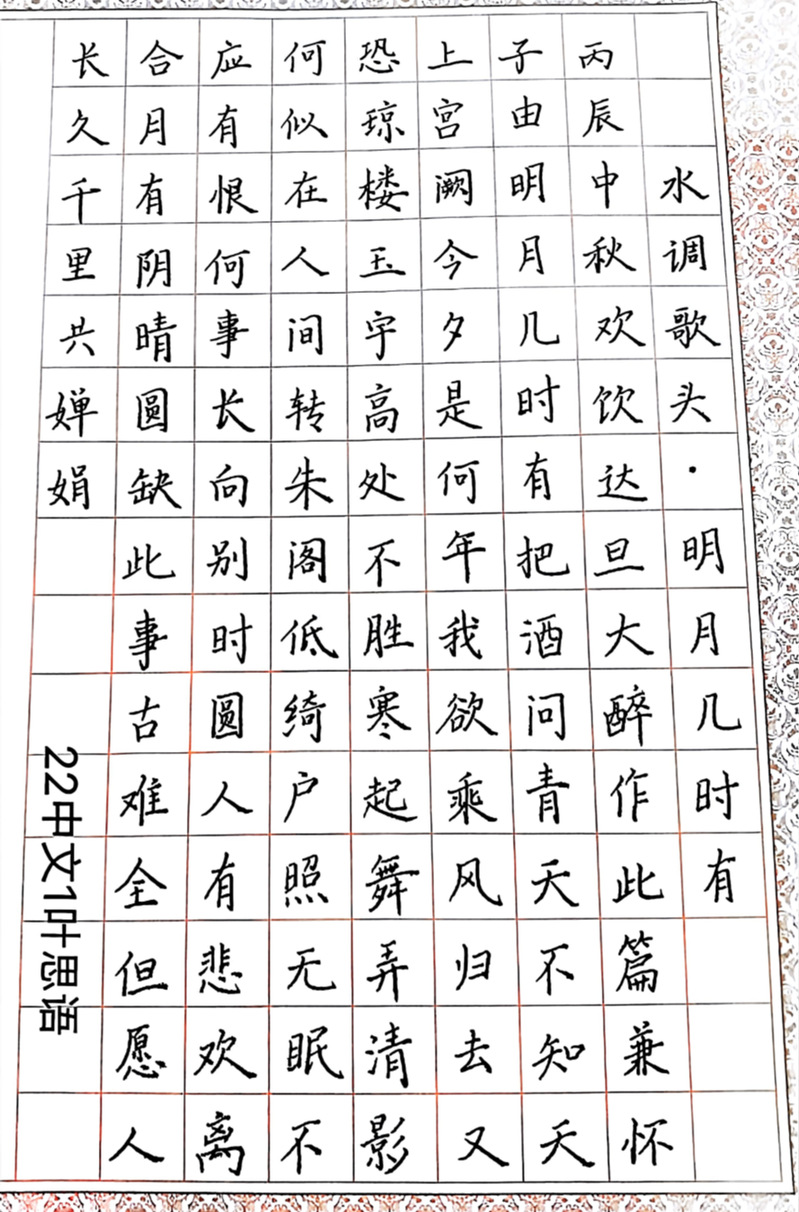 水调歌头·明月几时有
丙辰中秋欢饮达旦大醉作此篇兼怀
子由明月几时有把酒问青天不知天
上宫阙今夕是何年我欲乘风归去又
恐琼楼玉宇高处不胜寒起舞弄清影
何似在人间转朱阁低绮户照无眠不
应有恨何事长向别时圆人有悲欢离
合月有阴晴圆缺此事古难全但愿人
长久千里共婵娟
22中文1叶思语